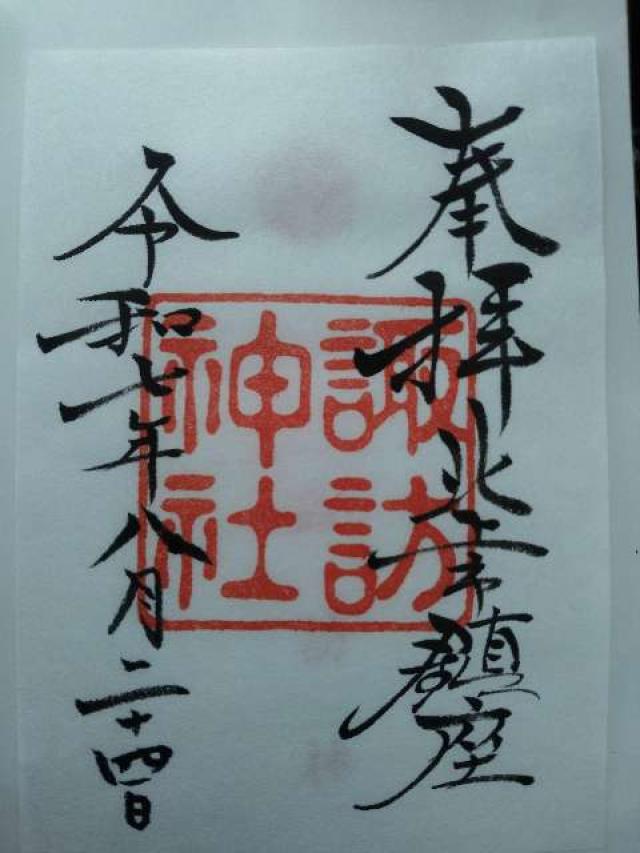 奉拝 北上市鎮座
諏訪
神社
令和七年八月二十四日